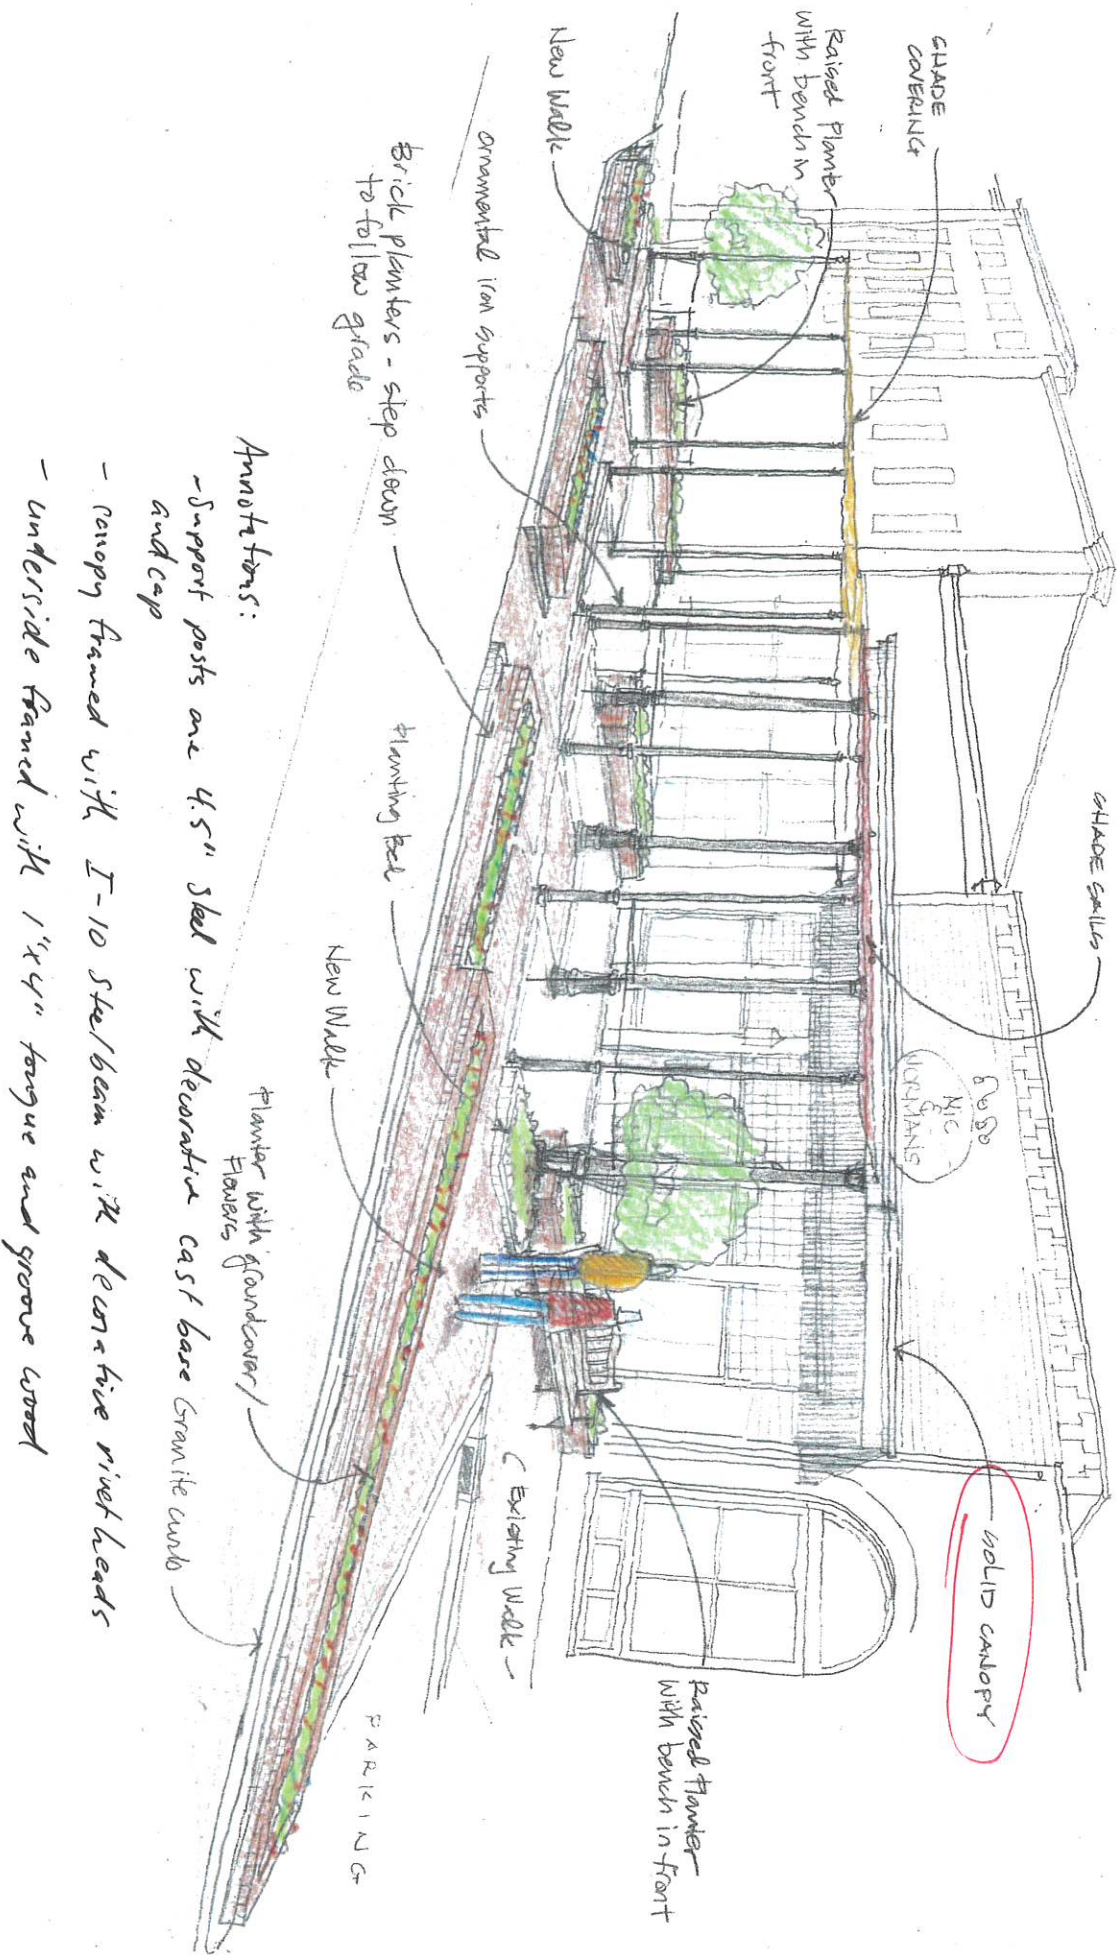 SHADE
COVERING
Raised Planter
with bench in
front
New Walk
ornamental iron supports
Brick planters - step down
to follow grade
SHADE SAILS
MIC
WORKMANS
SOLID CANOPY
Planting Bed
New Walk
Planter with groundcover/
Flowers
Existing Walk
Raised Planter
with bench in front
PARKING
Granite curb
Annotations:
- Support posts are 4.5" steel with decorative cast base
and cap
- canopy framed with I-10 steel beam with decorative rivet heads
- underside framed with 1"x4" tongue and groove wood